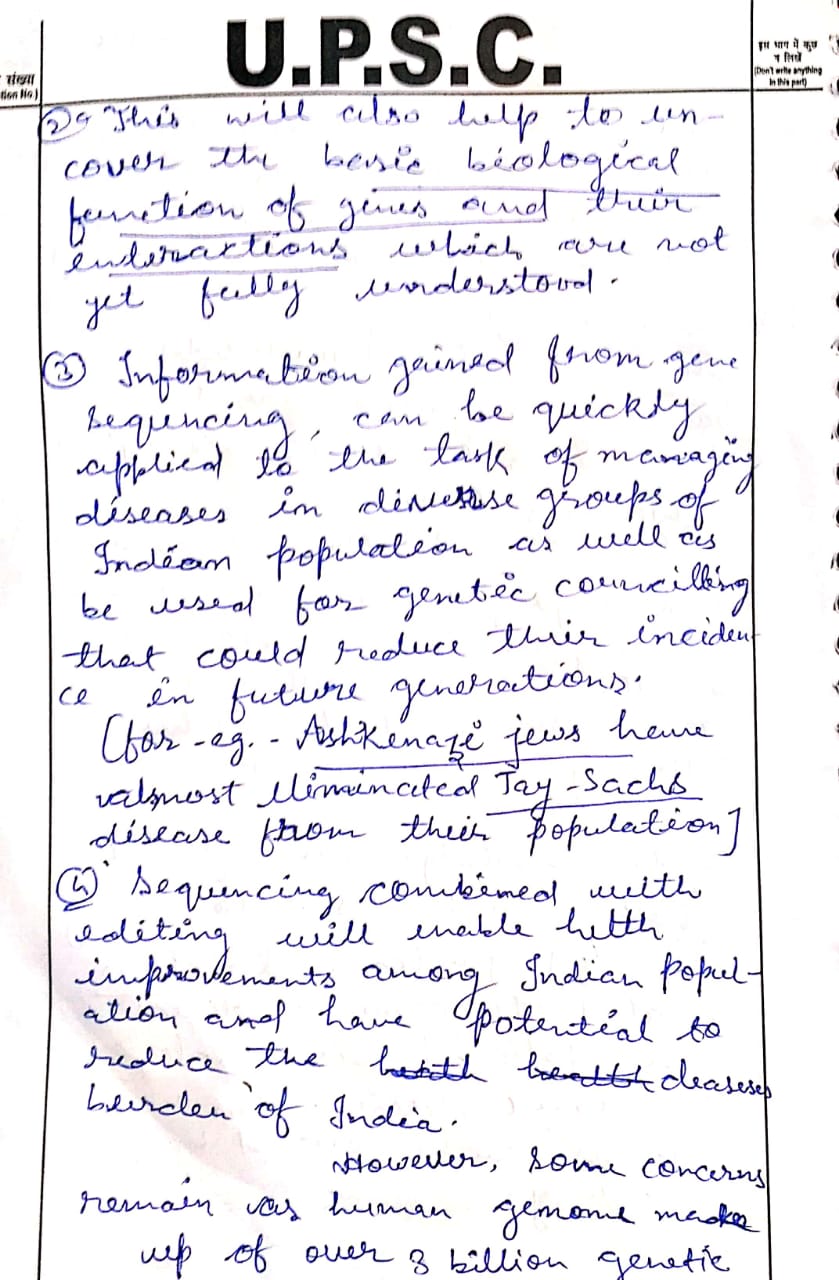 U.P.S.C.
संख्या
tion No.)
इस भाग में कुछ
न लिखें
(Don't write anything
in this part)
② This will also help to un-
cover the basic biological
function of genes and their
interactions which are not
yet fully understood.
③ Information gained from gene
sequencing, can be quickly
applied to the task of managing
diseases in diverse groups of
Indian population as well as
be used for genetic councilling
that could reduce their inciden-
ce in future generations.
[for -eg. - Ashkenazi jews have
almost eliminated Tay-Sachs
disease from their population]
④ Sequencing combined with
editing will enable helth
improvements among Indian popul-
ation and have potential to
reduce the deaseses
burden of India.
However, some concerns
remain as human genome made
up of over 3 billion genetic